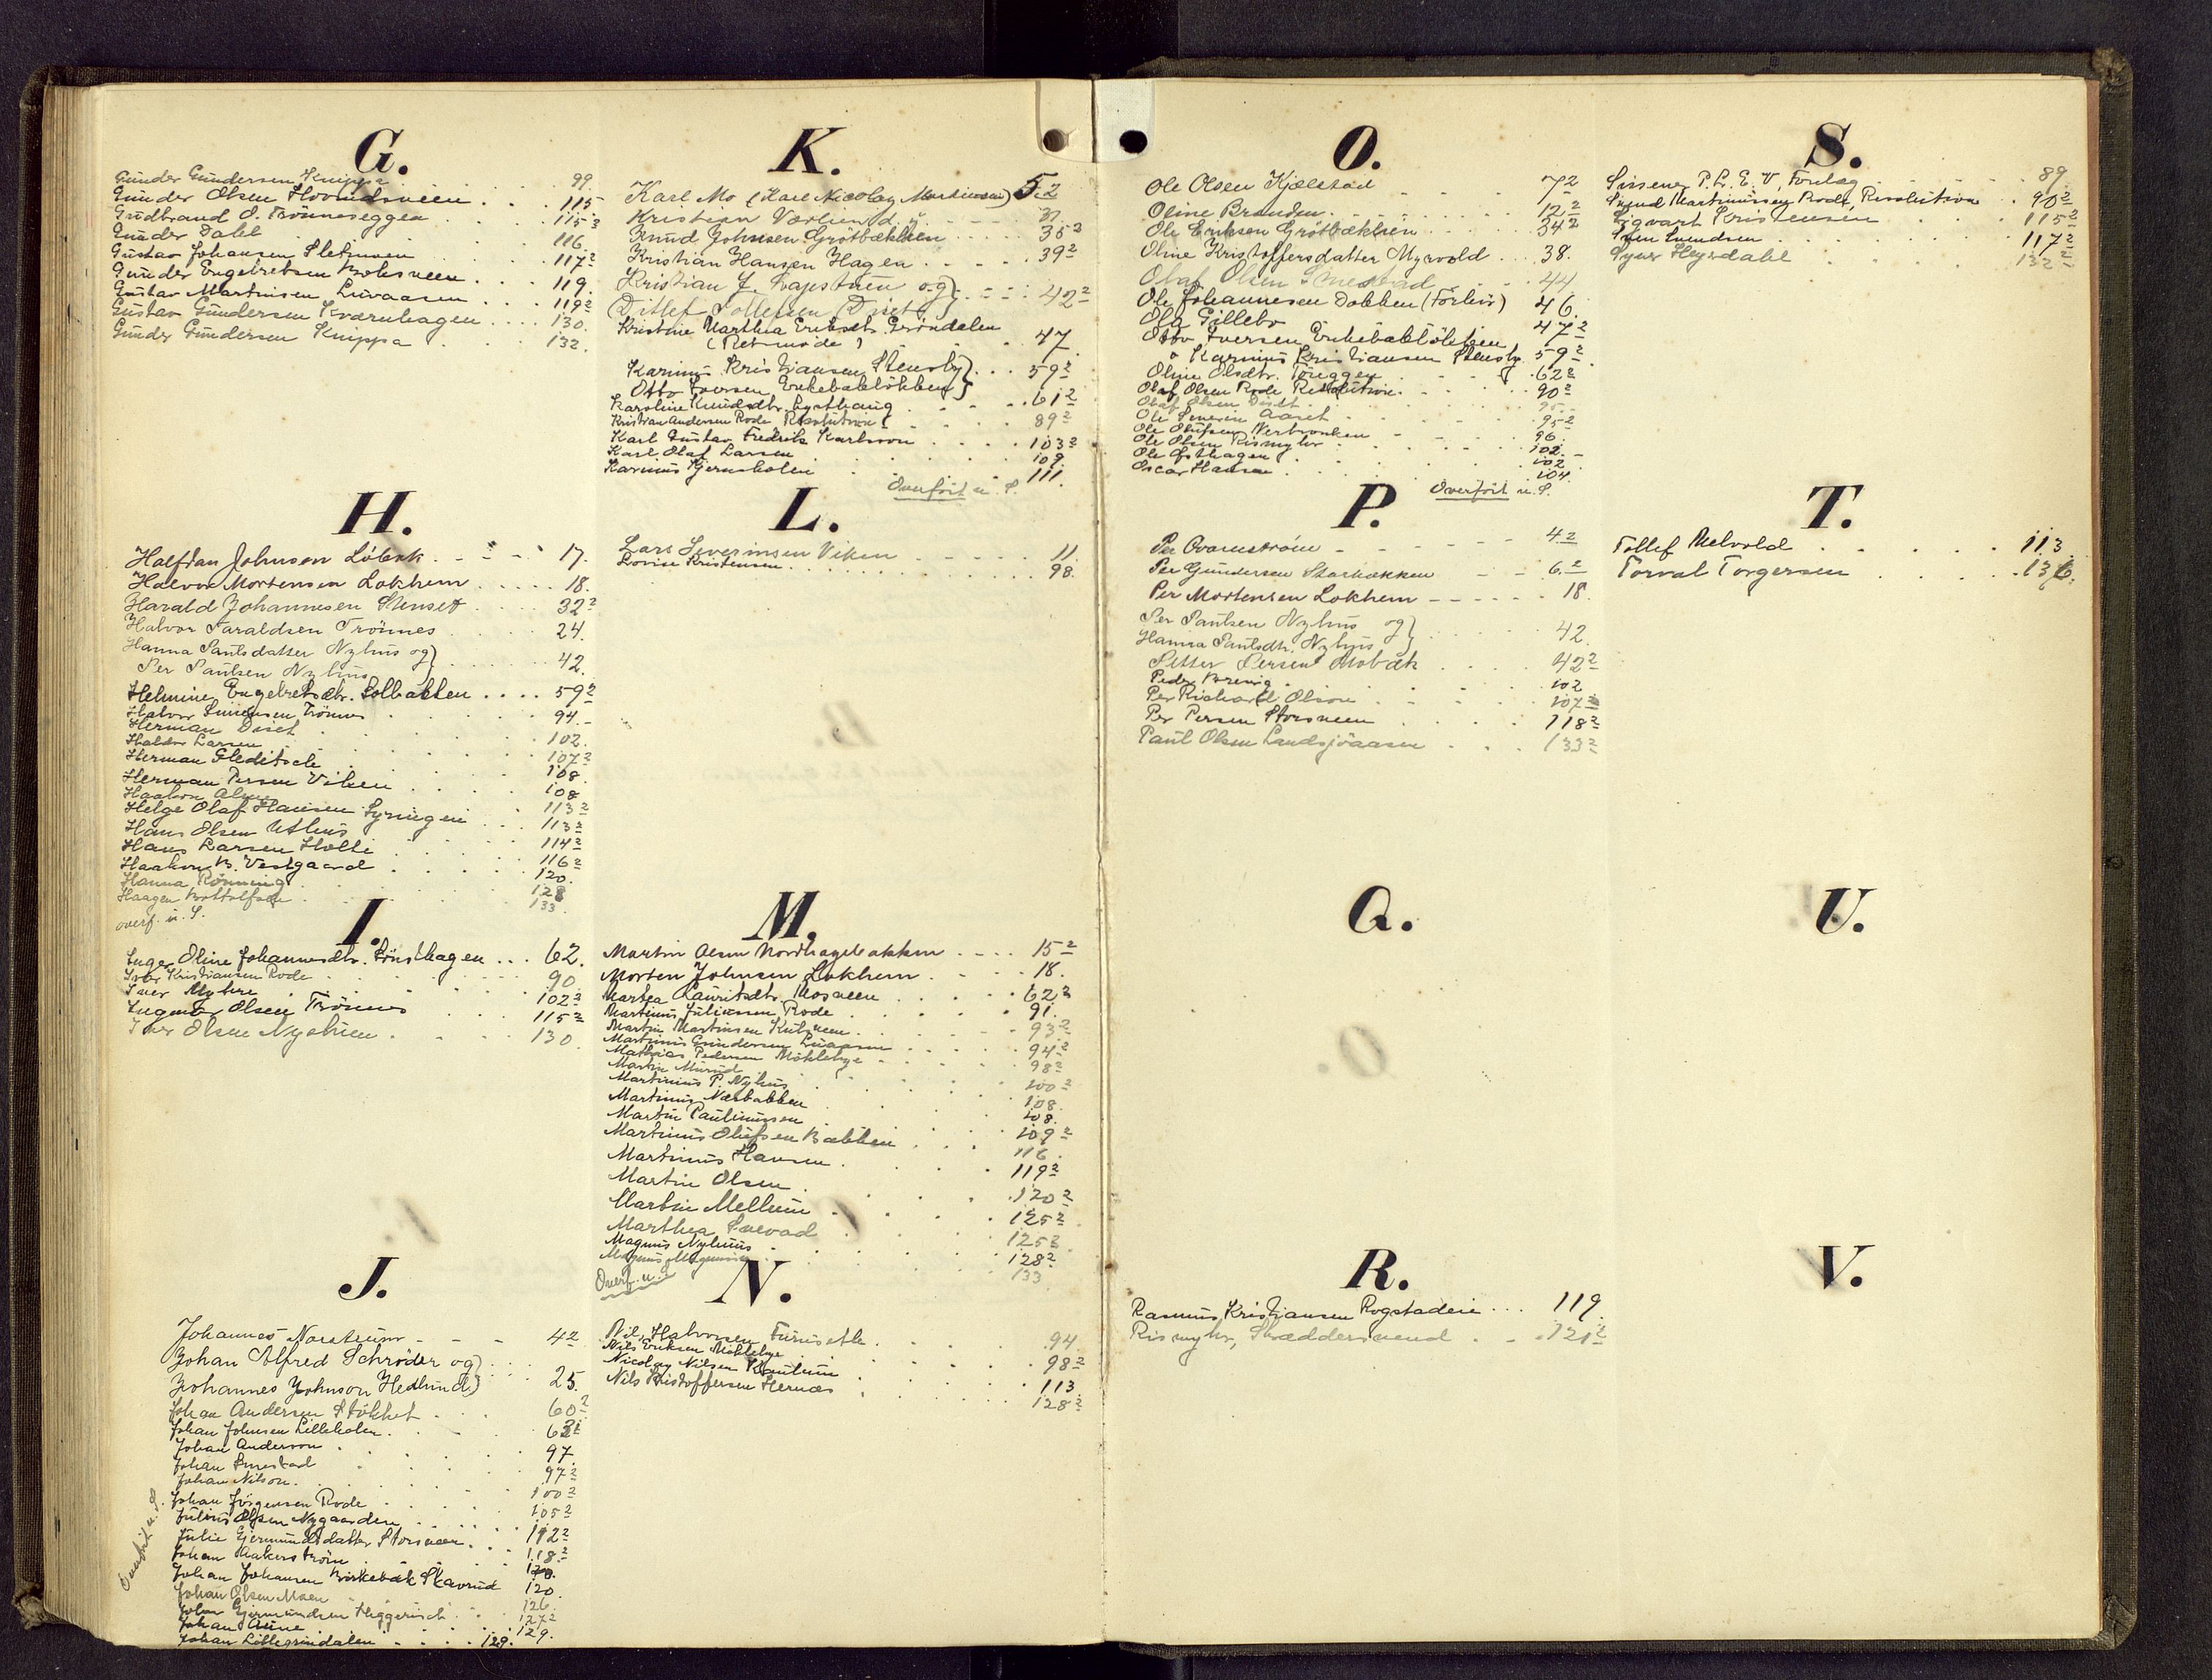 G.
Gunder Gundersen Knippa . . . 99.
Gunder Olsen Hovindsveen . . . 115
Gudbrand O. Trönneseggen . . . 115 2
Gunder Dahl . . . 116.
Gustav Johansen Sletmoen . . . 117 2
Gunder Engebretsen Moksveen . . . 119.
Gustav Martinsen Luvaasen . . . 119 2
Gustav Gundersen Kværnhagen . . . 130.
Gunder Gundersen Knippa . . . 132.
H.
Halfdan Johnson Löbek . . . 17.
Halvor Mortensen Lokhem . . . 18.
Harald Johannesen Stenset . . . 32 2
Halvor Taraldsen Trönnes . . . 24.
Hanna Paulsdatter Nyhus og}
Per Paulsen Nyhus . . . 42.
Helmine Engebretsdtr. Solbakken . . . 59 2
Halvor Simensen Trönnes . . . 94.
Herman Diset . . . 102.
Haldor Larsen . . . 107 2
Herman Gleditsch . . . 108.
Herman Persen Viken . . . 108
Haakon . . . 113 2
Helge Olaf Hansen Syringen . . . 113 2
Hans Olsen Uthus . . . 114 2
Hans Larsen Holti . . . 116 2
Haakon B. Vestgaard . . . 120.
Hanna Rönning . . . 128
Haagen Bottolfsen . . . 133.
overf. n. S.
I.
Inger Oline Johannesdtr. Tönsthagen . . . 62.
Iver Kristiansen Rode . . . 90.
Iver Myhre . . . 102 2
Ingvar Olsen Trönnes . . . 115 2
Iver Olsen Nystuen . . . 130.
J.
Johannes Norström . . . 42
Johan Alfred Schröder og}
Johannes Johnson Hedlund} . . . 25.
Johan Andersen Stökket . . . 60 2
Johan Johnsen Lilleholen . . .
Johan Anderson . . . 97.
Johan Smestad . . . 97 2
Johan Nilson . . . 100 2
Johan Jörgensen Rode . . . 105 2
Julius Olsen Nygaarden . . . 112 2
Julie Gjermundsdatter Storsveen . . . 118 2
Johan Aakerström . . . 120.
Johan Johansen Birkebæk Skavrud 120.
Johan Olsen Moen . . . 126.
Johan Gjermundsen Heggerisch . . . 127 2
Johan Aune . . . 129.
Johan Lillegrindalen . . . 129.
Overfört n. S.
K.
Karl Mo (Karl Nicolay Martinsen) 5.2
Kristian Værlien d. y. . . . 31.
Knud Johnsen Grötbækken . . . 35 2
Kristian Hansen Hagen . . . 39 2
Kristian J. Løvstuen og}
(Ditlef Tollefsen Diset) . . . 42 2
Kristine Marthea Eriksdt. Gröndalen
(Retmöde) . . . 47
Karinus Kristiansen Stensby}
Otto Iversen Enkebaklökken} . . . 59 2
Karoline Knudsdtr. Lysthaug . . . 61 2
Kristian Andersen Rode Resolution . . . 89 2
Karl Gustav Fredrik Karlsson . . . 103 2
Karl Olaf Larsen . . . 109.
Karinus Kjernsholen . . . 111.
Overfört n. S.
L.
Lars Severinsen Viken . . . 11.
Lovise Kristensen . . . 98.
M.
Martin Olsen Nordhagebakken . . . 15 2
Morten Johnsen Lokhem . . . 18.
Marthea Lauritsdtr. Mosveen . . . 62 2
Martinus Juliussen Rode . . . 91.
Martin Martinsen Kulsveen . . . 93 2
Martinus Gundersen Luvaasen . . . 94 2
Mathias Pedersen Möklebye . . . 98 2
Martin Morud . . . 100 2
Martinius P. Nyhus . . . 108.
Martinus Nærbakken . . . 108.
Martin Paulinussen . . . 109 2
Martinus Olufsen Bækken . . . 116.
Martinus Hansen . . . 119 2
Martin Olsen . . . 120 2
Martin Mellum . . . 125 2
Marthea Snevad . . . 125 2
Magnus Nyhuus . . . 128 2
Magnus Magnusen . . . 133
Overf. n. S.
N.
Nils Halvorsen Furuseth . . . 94.
Nils Eriksen Möklebye . . . 98 2
Nicolay Nilsen Kvutum . . . 113.
Nils Kristoffersen Hernæs . . . 128 2
O.
Ole Olsen Kjølstad . . . 72
Oline Branden . . . 12 2
Ole Eriksen Grötbækken . . . 34 2
Oline Kristoffersdatter Myrvold . . . 38.
Olaf Olsen Smestad . . . 44.
Ole Johannesen Dokken (Forhör) 46.
Ola Gillebo . . . 47 2
Otto Iversen Enkebaklökken
o Karinus Kristiansen Stensby . . . 59 2
Oline Olsdtr. Töreggen . . . 62 2
Olaf Olsen Rode Resolution . . . 90 2
Olaf Olsen Diset . . . 95.
Ole Severin Aaset . . . 95 2
Ole Olufsen Nerbronken . . . 96.
Ole Olsen Rismyhr . . . 102.
Ole Østhagen . . . 102
Oscar Hansen . . . 104.
Overfört n. S.
P.
Per Qvarnström . . . 42
Per Gundersen Storbækken . . . 6.2
Per Mortensen Lokhem . . . 18.
Per Paulsen Nyhus og}
Hanna Paulsdtr. Nyhus} . . . 42.
Petter Persen Mobæk . . . 42 2
Peder Brenig . . . 102
Per Richard Olson . . . 107 2
Per Persen Storsveen . . . 118 2
Paul Olsen Landsjöaasen . . . 133 2
Q.
R.
Rasmus Kristjansen Rogstadeie . . . 119.
Rismyhr, Skræddersvend . . . 121 2
S.
Sissener P. L. E. V, Forlæg . . . 89.
Svend Martinussen Rode, Resolution . . . 90 2
Sigvart Kristensen . . . 115 2
Sven Svendsen . . . 117 2
Syver Heyerdahl . . . 132 2
T.
Tollef Melvold . . . 113.
Torval Torgersen . . . 136.
U.
V.